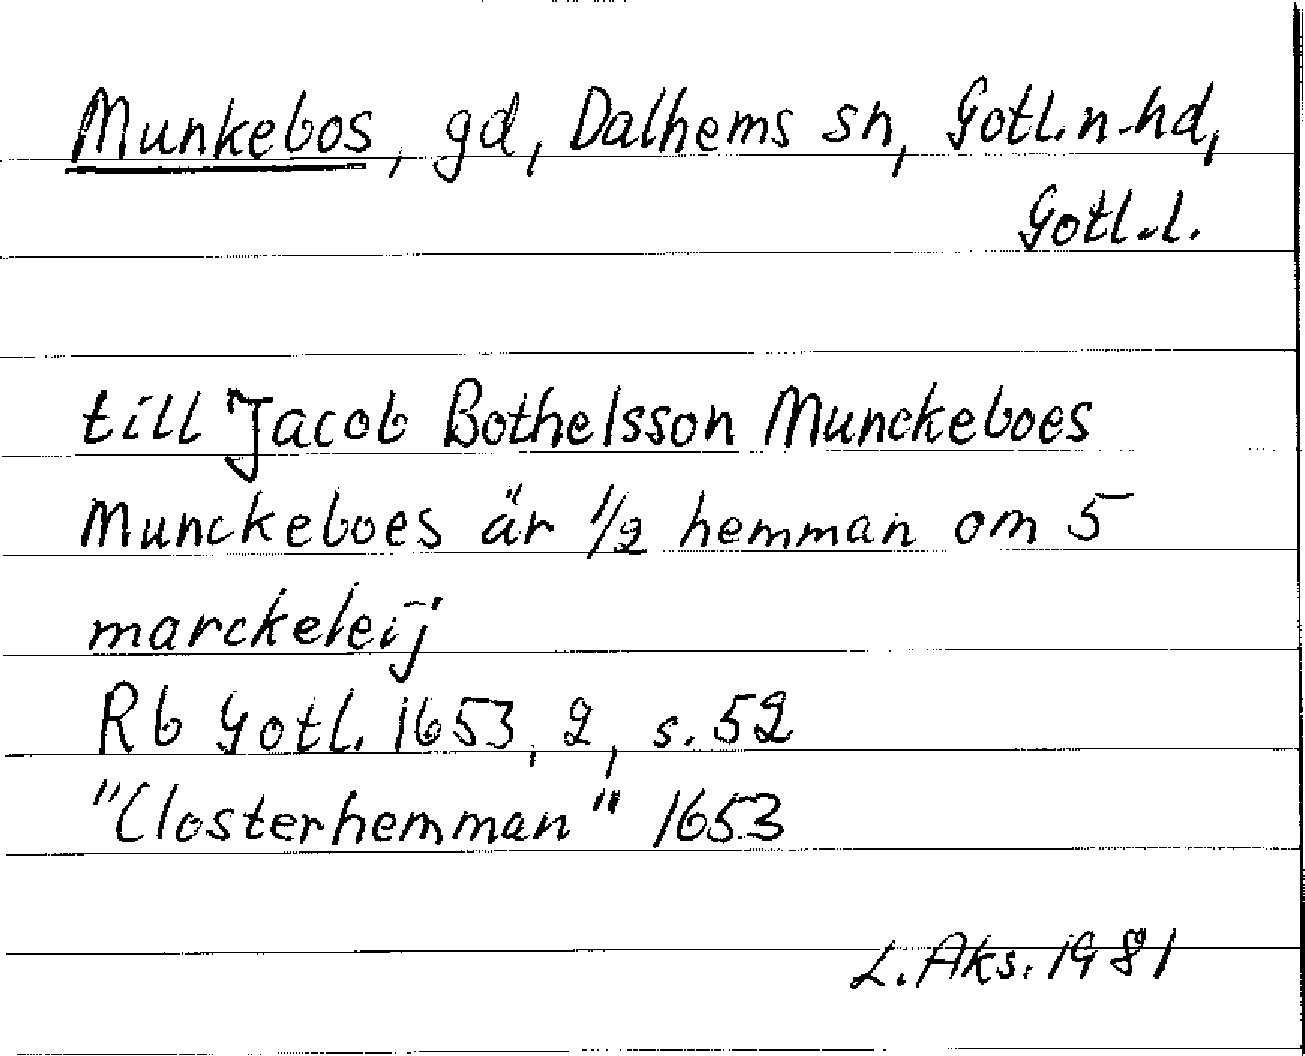 Munkebos, gd, Dalhems sn, Gotl.n.hd,
Gotl.l.
till Jacob Bothelsson Munckeboes
Munckeboes är 1/2 hemman om 5
marckeleij
Rb Gotl. 1653, 2, s. 52
"Closterhemman" 1653
L. Aks. 1981